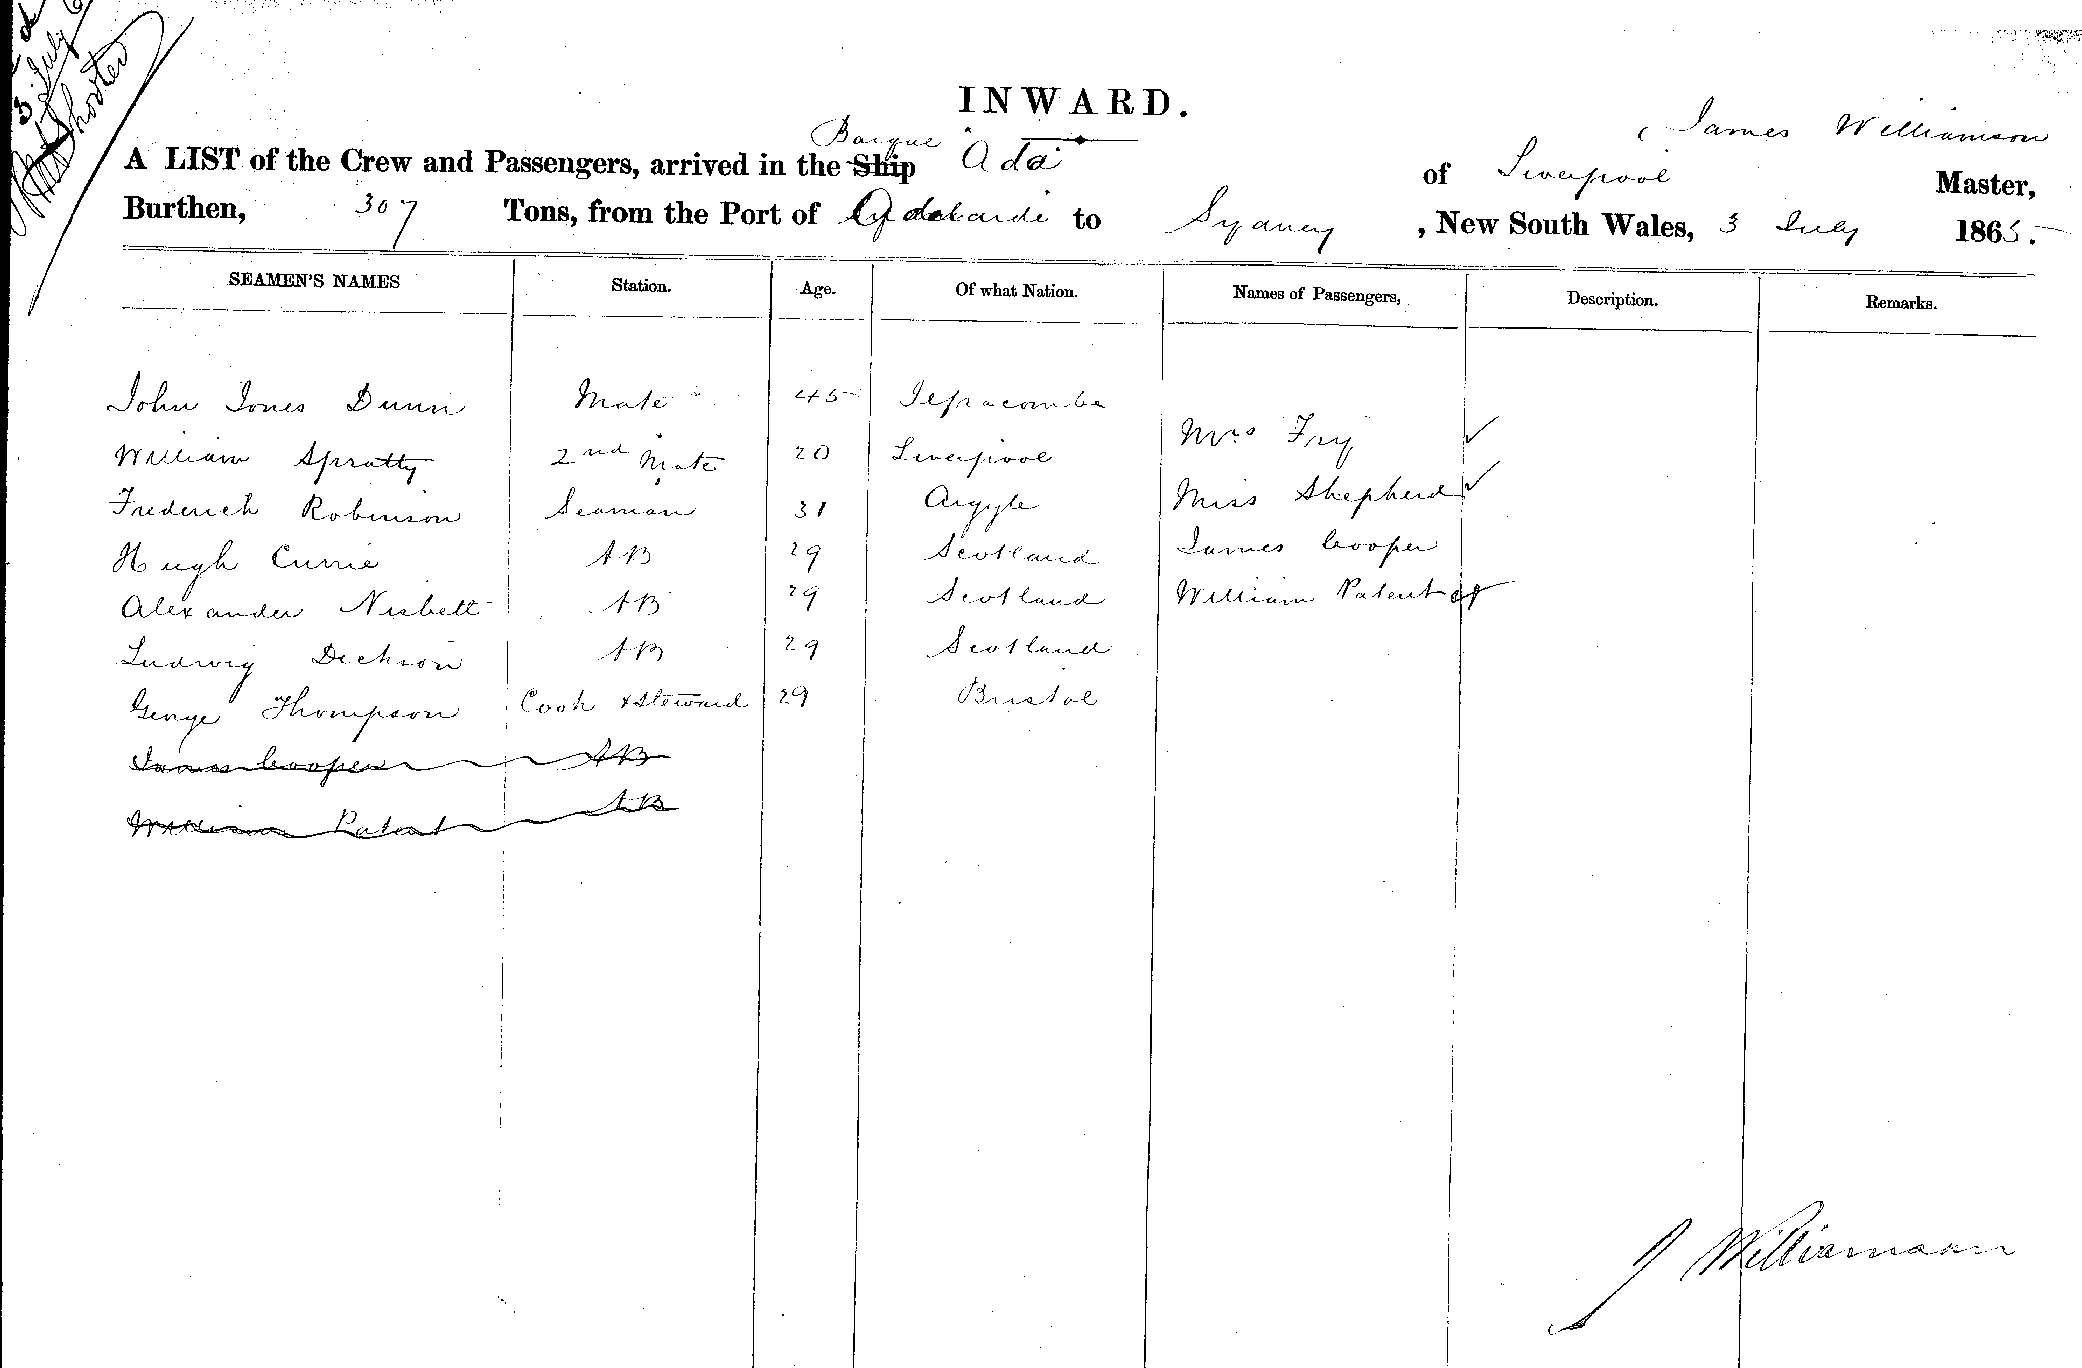 3 July 6
Shorter
INWARD.
James Williamson
Barque
A LIST of the Crew and Passengers, arrived in the Ship Ada of Liverpool Master,
Burthen, 307 Tons, from the Port of to Sydney , New South Wales, 3 July 1865.
SEAMEN'S NAMES Station. Age. Of what Nation. Names of Passengers, Description. Remarks.
John Jones Dunn Mate 45 Ilfracombe
Mrs Fry
William Spratty 2nd Mate 20 Liverpool
Miss Shepherd
Frederick Robinson Seaman 31 Argyle
James Cooper
Hugh Currie AB 29 Scotland
William Patent
Alexander Nisbett AB 29 Scotland
Ludwig Dickson AB 29 Scotland
George Thompson Cook & Steward 29 Bristol
James Cooper AB
William Patent AB
J Williamson